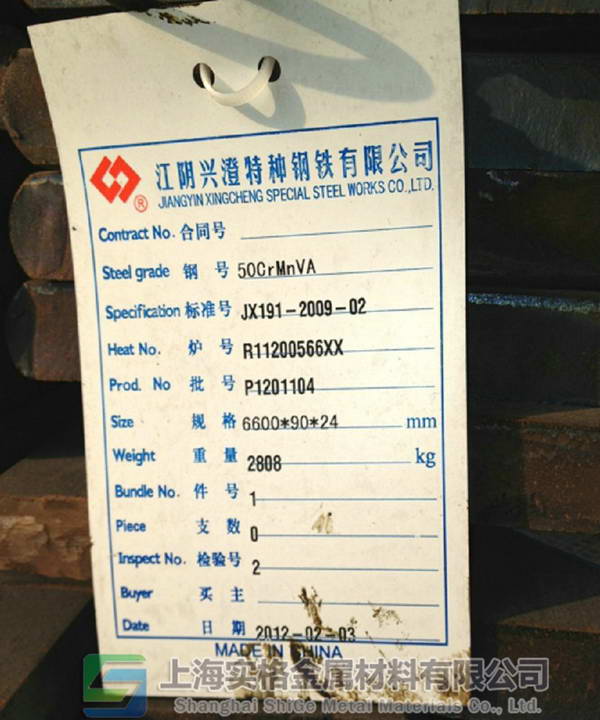 江阴兴澄特种钢铁有限公司
®
JIANGYIN XINGCHENG SPECIAL STEEL WORKS CO.,LTD.
Contract No. 合同号
Steel grade 钢 号 50CrMnVA
Specification 标准号 JX191-2009-02
Heat No. 炉 号 R11200566XX
Prod. No 批 号 P1201104
Size 规 格 6600*90*24 mm
Weight 重 量 2808 kg
Bundle No. 件 号 1
Piece 支 数 0
Inspect No. 检验号 2
Buyer 买 主
Date 日 期 2012-02-03
MADE IN CHINA
上海实格金属材料有限公司
Shanghai ShiGe Metal Materials Co., Ltd